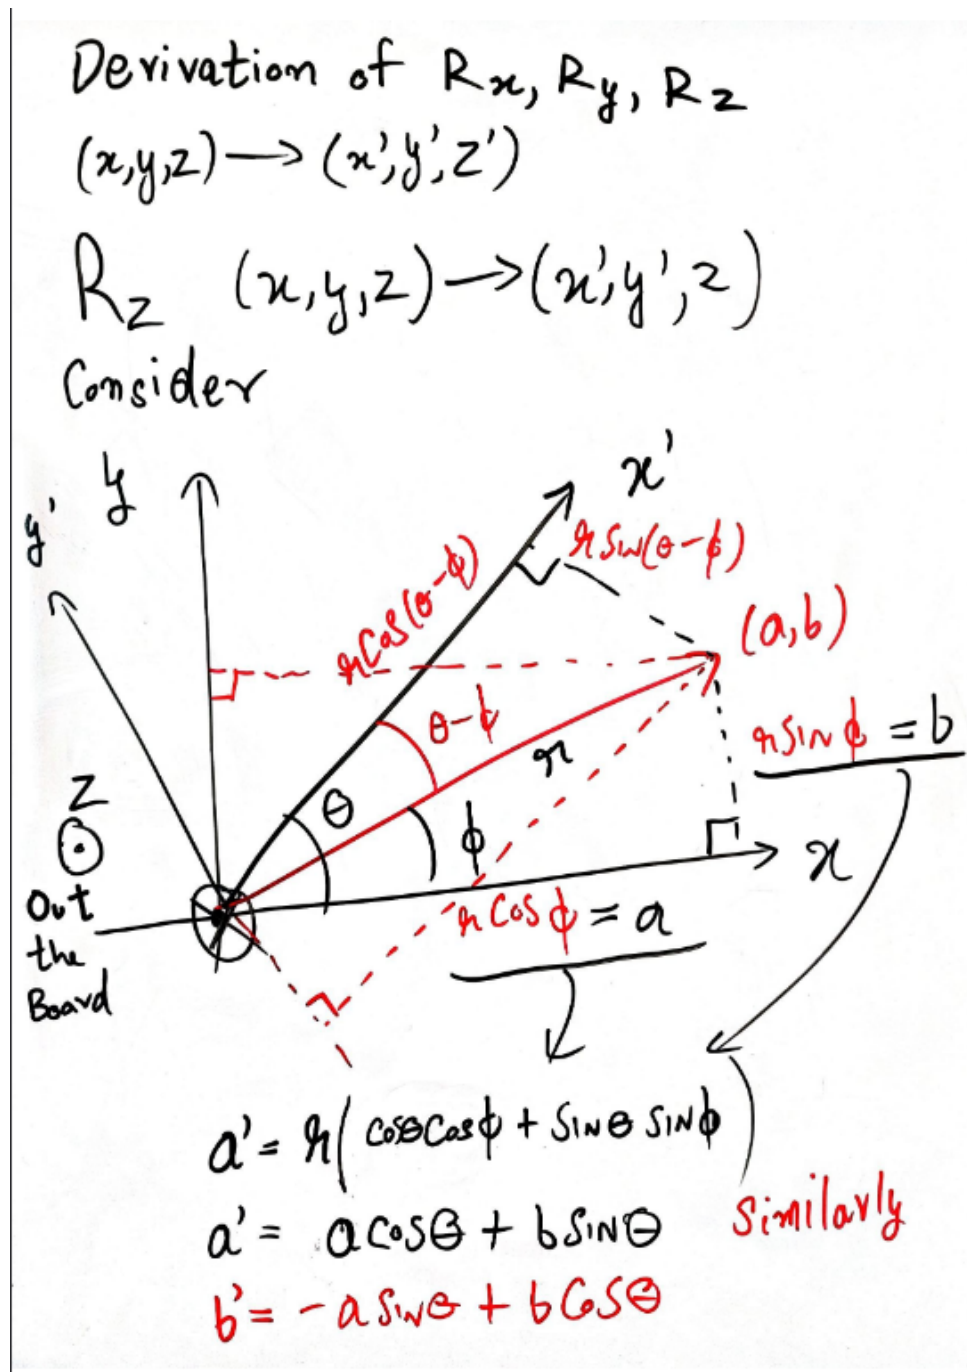 Derivation of Rx, Ry, Rz
(x,y,z) → (x',y',z')
Rz (x,y,z) → (x',y',z)
Consider
y'
y
x'
r sin(θ-ϕ)
r cos(θ-ϕ)
(a,b)
θ-ϕ
r
r sin ϕ = b
θ
ϕ
x
z
Out
the
Board
r cos ϕ = a
a' = r( cosθ cos ϕ + sin θ sin ϕ )
a' = a cos θ + b sin θ
similarly
b' = - a sin θ + b cos θ